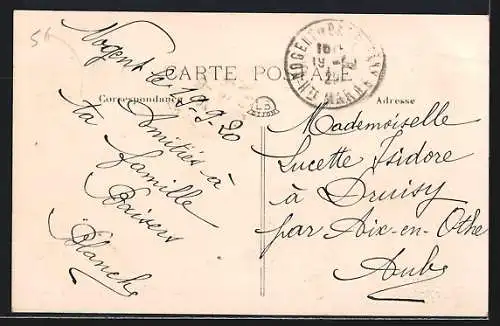 56
CARTE POSTALE
Correspondance
Adresse
Nogent le 19-9-20
Amitiés à
ta famille
Baisers
Blanche
Mademoiselle
Lucette Isidore
à Druisy
par Aix-en-Othe
Aube